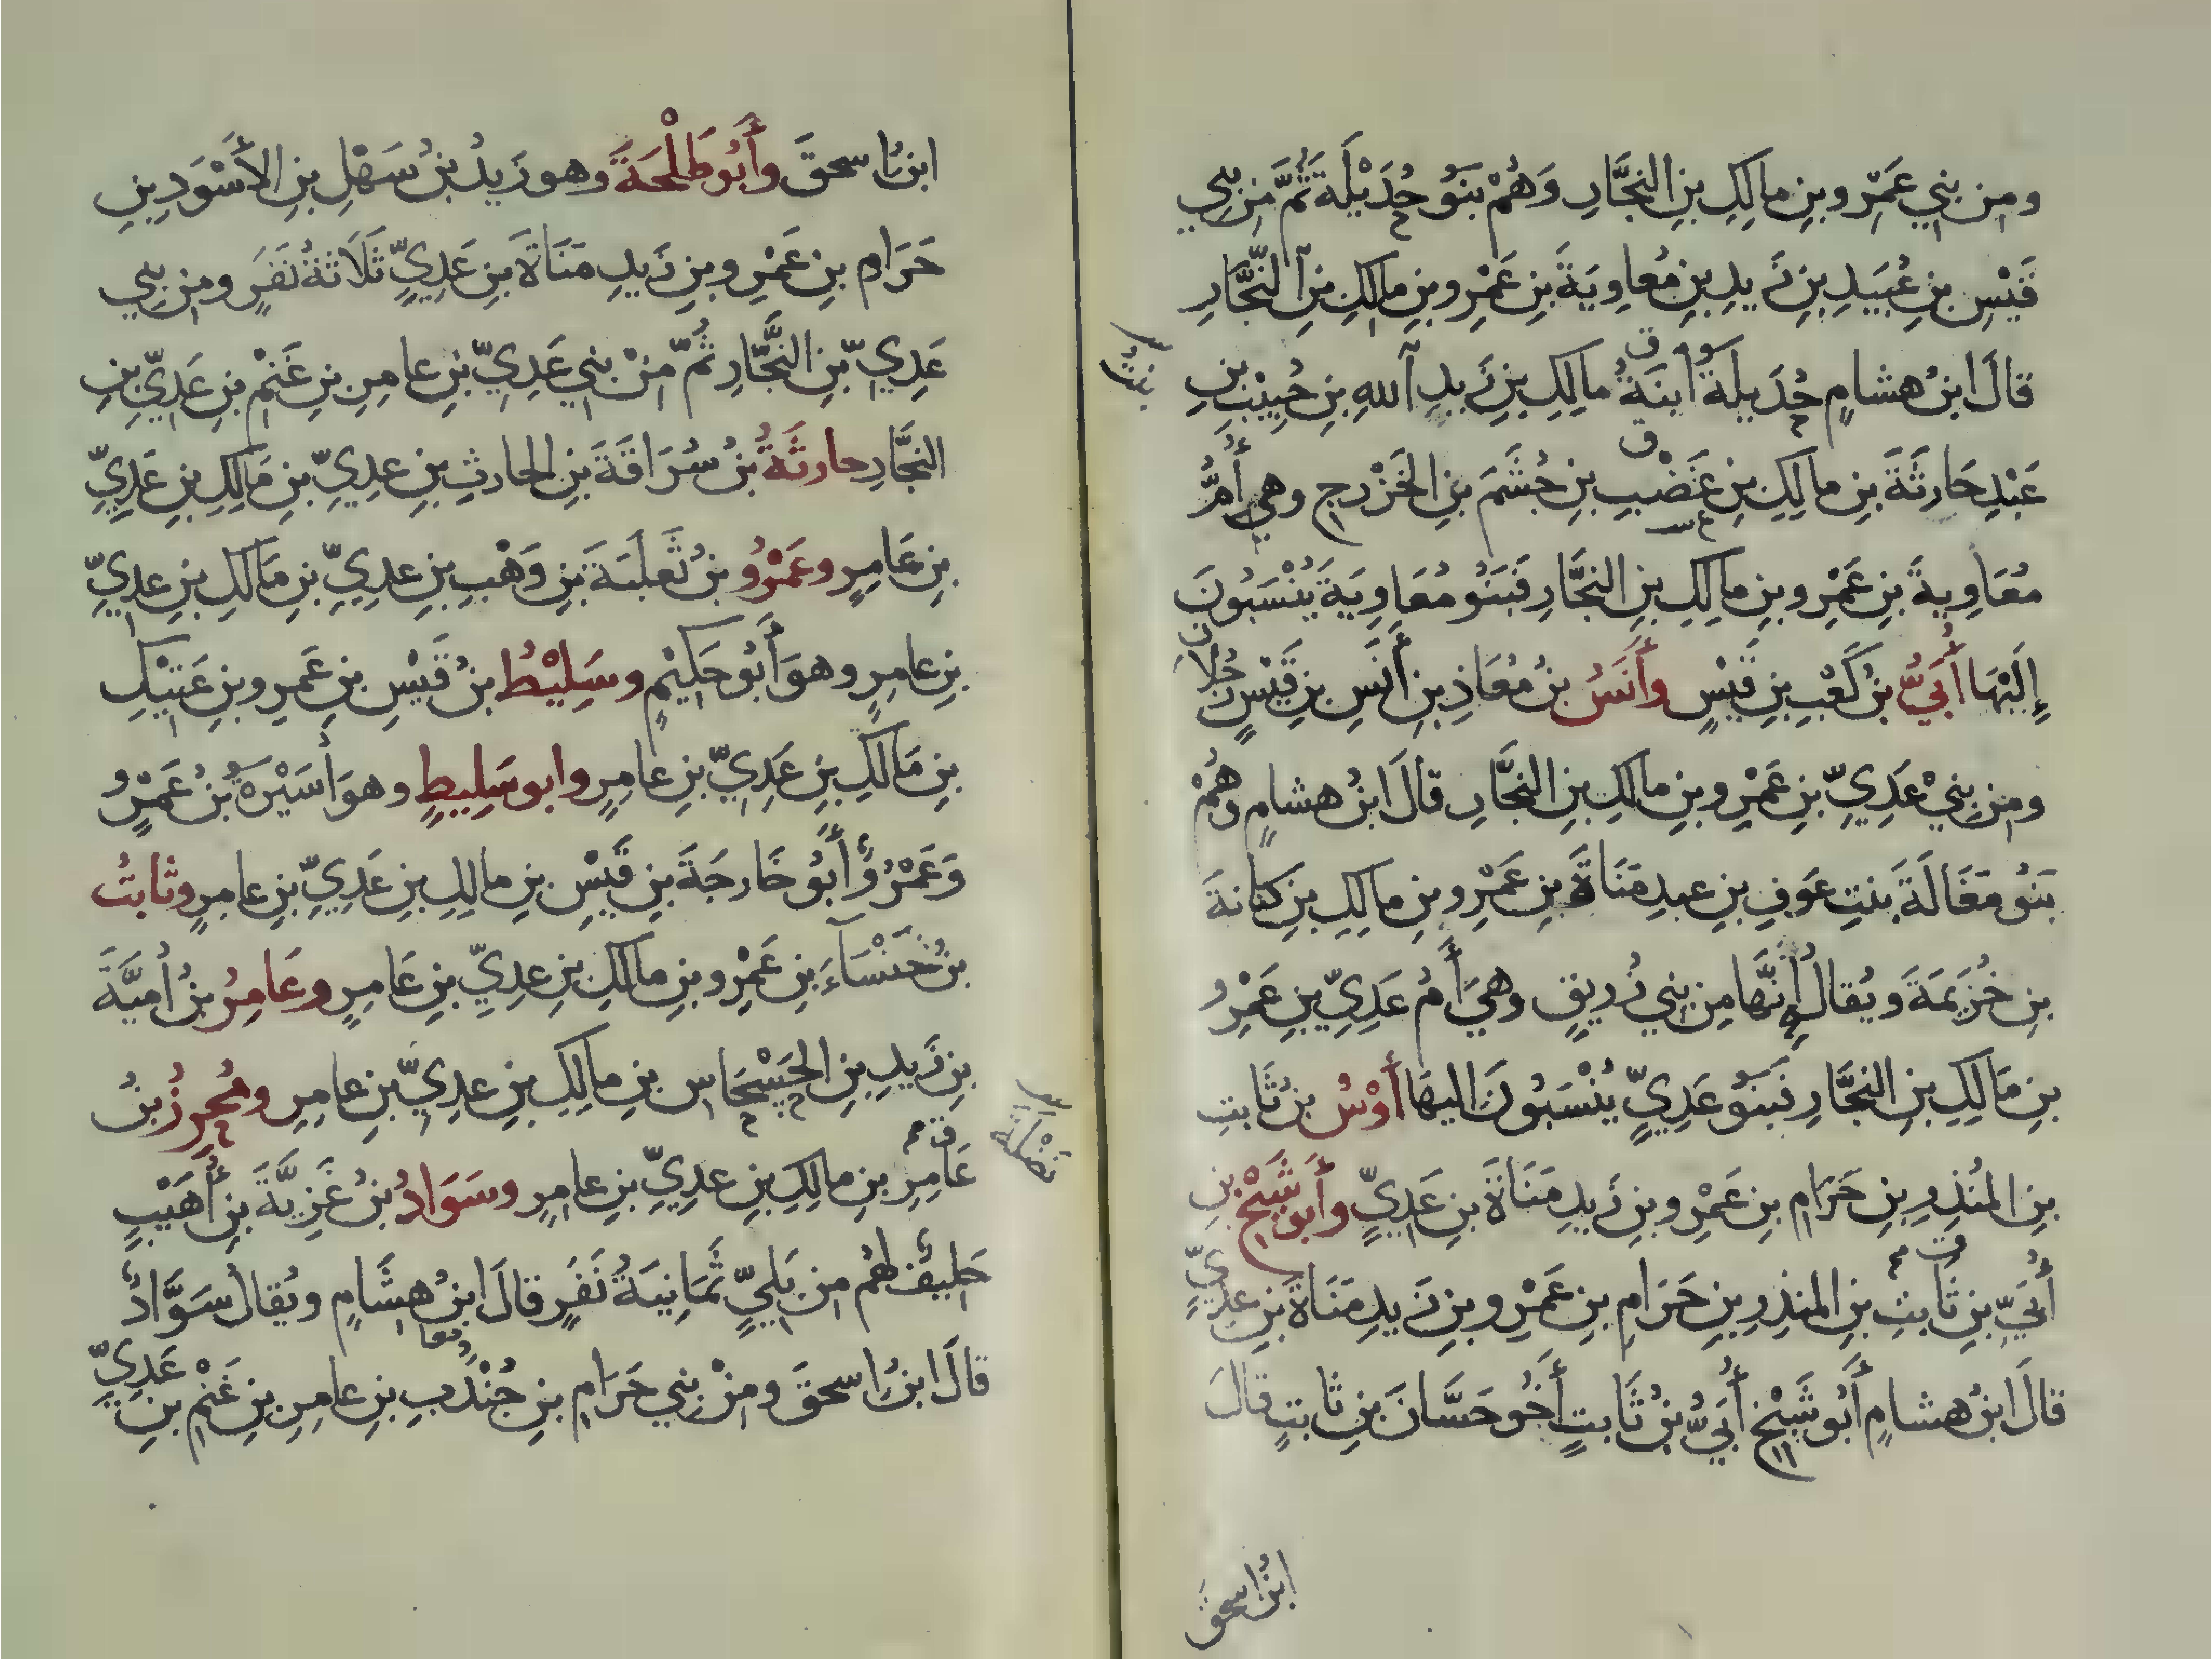 ومِن بَنِي عَمْرِو بنِ مالِكِ بنِ النجَّارِ وَهُمْ بَنُو حُدَيْلَةَ ثُمَّ مِن بَنِي
قَيْسِ بنِ عُبَيدِ بنِ زَيدِ بنِ مُعاوِيَةَ بنِ عَمْرِو بنِ مالِكِ بنِ النَّجَّارِ
قالَ ابنُ هشامٍ حُدَيلَةُ ابنَةُ مالِكِ بنِ زَيدِ اللهِ بنِ حَبِيْبِ بنِ
بنتُ
عَبْدِ حَارثَةَ بنِ مالِكِ بنِ غَضْبِ بنِ جُشَمَ بنِ الخَزْرجِ وهي أُمُّ
مُعَاوِيةَ بنِ عَمْرِو بنِ مالِكِ بنِ النجَّارِ فَبَنُو مُعَاوِيَةَ يُنْسَبُونَ
إِلَيْهَا أُبَيُّ بنُ كَعْبِ بنِ قَيْسٍ وأَنَسُ بنُ مُعَاذِ بنِ أَنَسِ بنِ قَيْسٍ رَجُلانِ
ومِن بَنِيْ عَدِيِّ بنِ عَمْرِو بنِ مالِكِ بنِ النجَّارِ قالَ ابنُ هشامٍ وَهُمْ
بَنُو مَغَالَةَ بنتِ عَوفِ بنِ عبدِ مَنَاةَ بنِ عَمْرِو بنِ مالِكِ بنِ كنانةَ
بنِ خُزَيمَةَ ويُقالُ إِنَّها مِن بَنِي زُرَيقٍ وهيَ أُمُّ عَدِيِّ بنِ عَمْرِو
بنِ مَالِكِ بنِ النجَّارِ فبَنُو عَدِيٍّ يُنْسَبُونَ اليهَا أَوْسُ بنُ ثَابتِ
بنِ المُنذِرِ بنِ حَرَامِ بنِ عَمْرِو بنِ زَيدِ مَنَاةَ بنِ عَدِيٍّ وأَبو شَيْخِ بنُ
أُبَيِّ بنِ ثَابتِ بنِ المنذِرِ بنِ حَرَامِ بنِ عَمْرِو بنِ زَيدِ مَنَاةَ بنِ عدِيٍّ
قالَ ابنُ هشامٍ أَبُو شَيْخٍ أُبَيُّ بنُ ثَابتٍ أَخُو حَسَّانَ بنِ ثابتٍ قالَ
ابنُ اسحقَ
ابنُ اسحقَ وأَبُو طَلْحَةَ وهو زَيدُ بنُ سَهْلِ بنِ الأَسْوَدِ بنِ
حَرَامِ بنِ عَمْرِو بنِ زَيدِ مَنَاةَ بنِ عَدِيٍّ ثَلَاثَةُ نَفَرٍ ومِن بَنِي
عَدِيِّ بنِ النجَّارِ ثُمَّ مِنْ بَنِي عَدِيِّ بنِ عامرِ بنِ غَنْمِ بنِ عَدِيِّ بنِ
النجَّارِ حارثَةُ بنُ سُرَاقَةَ بنِ الحارثِ بنِ عدِيِّ بنِ مَالِكِ بنِ عَدِيِّ
بنِ عَامِرٍ وعَمْرُو بنُ ثَعلَبَةَ بنِ وَهْبِ بنِ عدِيِّ بنِ مَالِكِ بنِ عدِيِّ
بنِ عامرٍ وهوَ أَبُو حَكِيْمٍ وسَلِيْطُ بنُ قَيْسِ بنِ عَمرِو بنِ عَتِيْكِ
بنِ مَالِكِ بنِ عَدِيِّ بنِ عامِرٍ وابو سَلِيطٍ وهوَ أُسَيْرَةُ بنُ عَمْرٍو
وَعَمْرٌو أَبُو خَارجَةَ بنِ قَيْسِ بنِ مالِكِ بنِ عَدِيِّ بنِ عامرٍ وثابتُ
بنُ خَنْسَآءَ بنِ عَمْرِو بنِ مالكِ بنِ عدِيِّ بنِ عَامرٍ وعَامِرُ بنُ أُميَّةَ
بنِ زَيدِ بنِ الحَسْحَاسِ بنِ مالِكِ بنِ عدِيِّ بنِ عامرٍ ومُحرِزُ بنُ
عَامِرِ بنِ مالِكِ بنِ عدِيِّ بنِ عامِرٍ وسَوَادُ بنُ غَزِيَّةَ بنِ أُهَيْبٍ
حَلِيفٌ لهُم مِن بَلِيٍّ ثَمَانِيَةُ نَفَرٍ قالَ ابنُ هِشَامٍ ويُقالُ سَوَّادٌ
قالَ ابنُ اسحقَ ومِنْ بَنِي حَرَامِ بنِ جُنْدَبِ بنِ عامرِ بنِ غَنْمِ بنِ عَدِيِّ